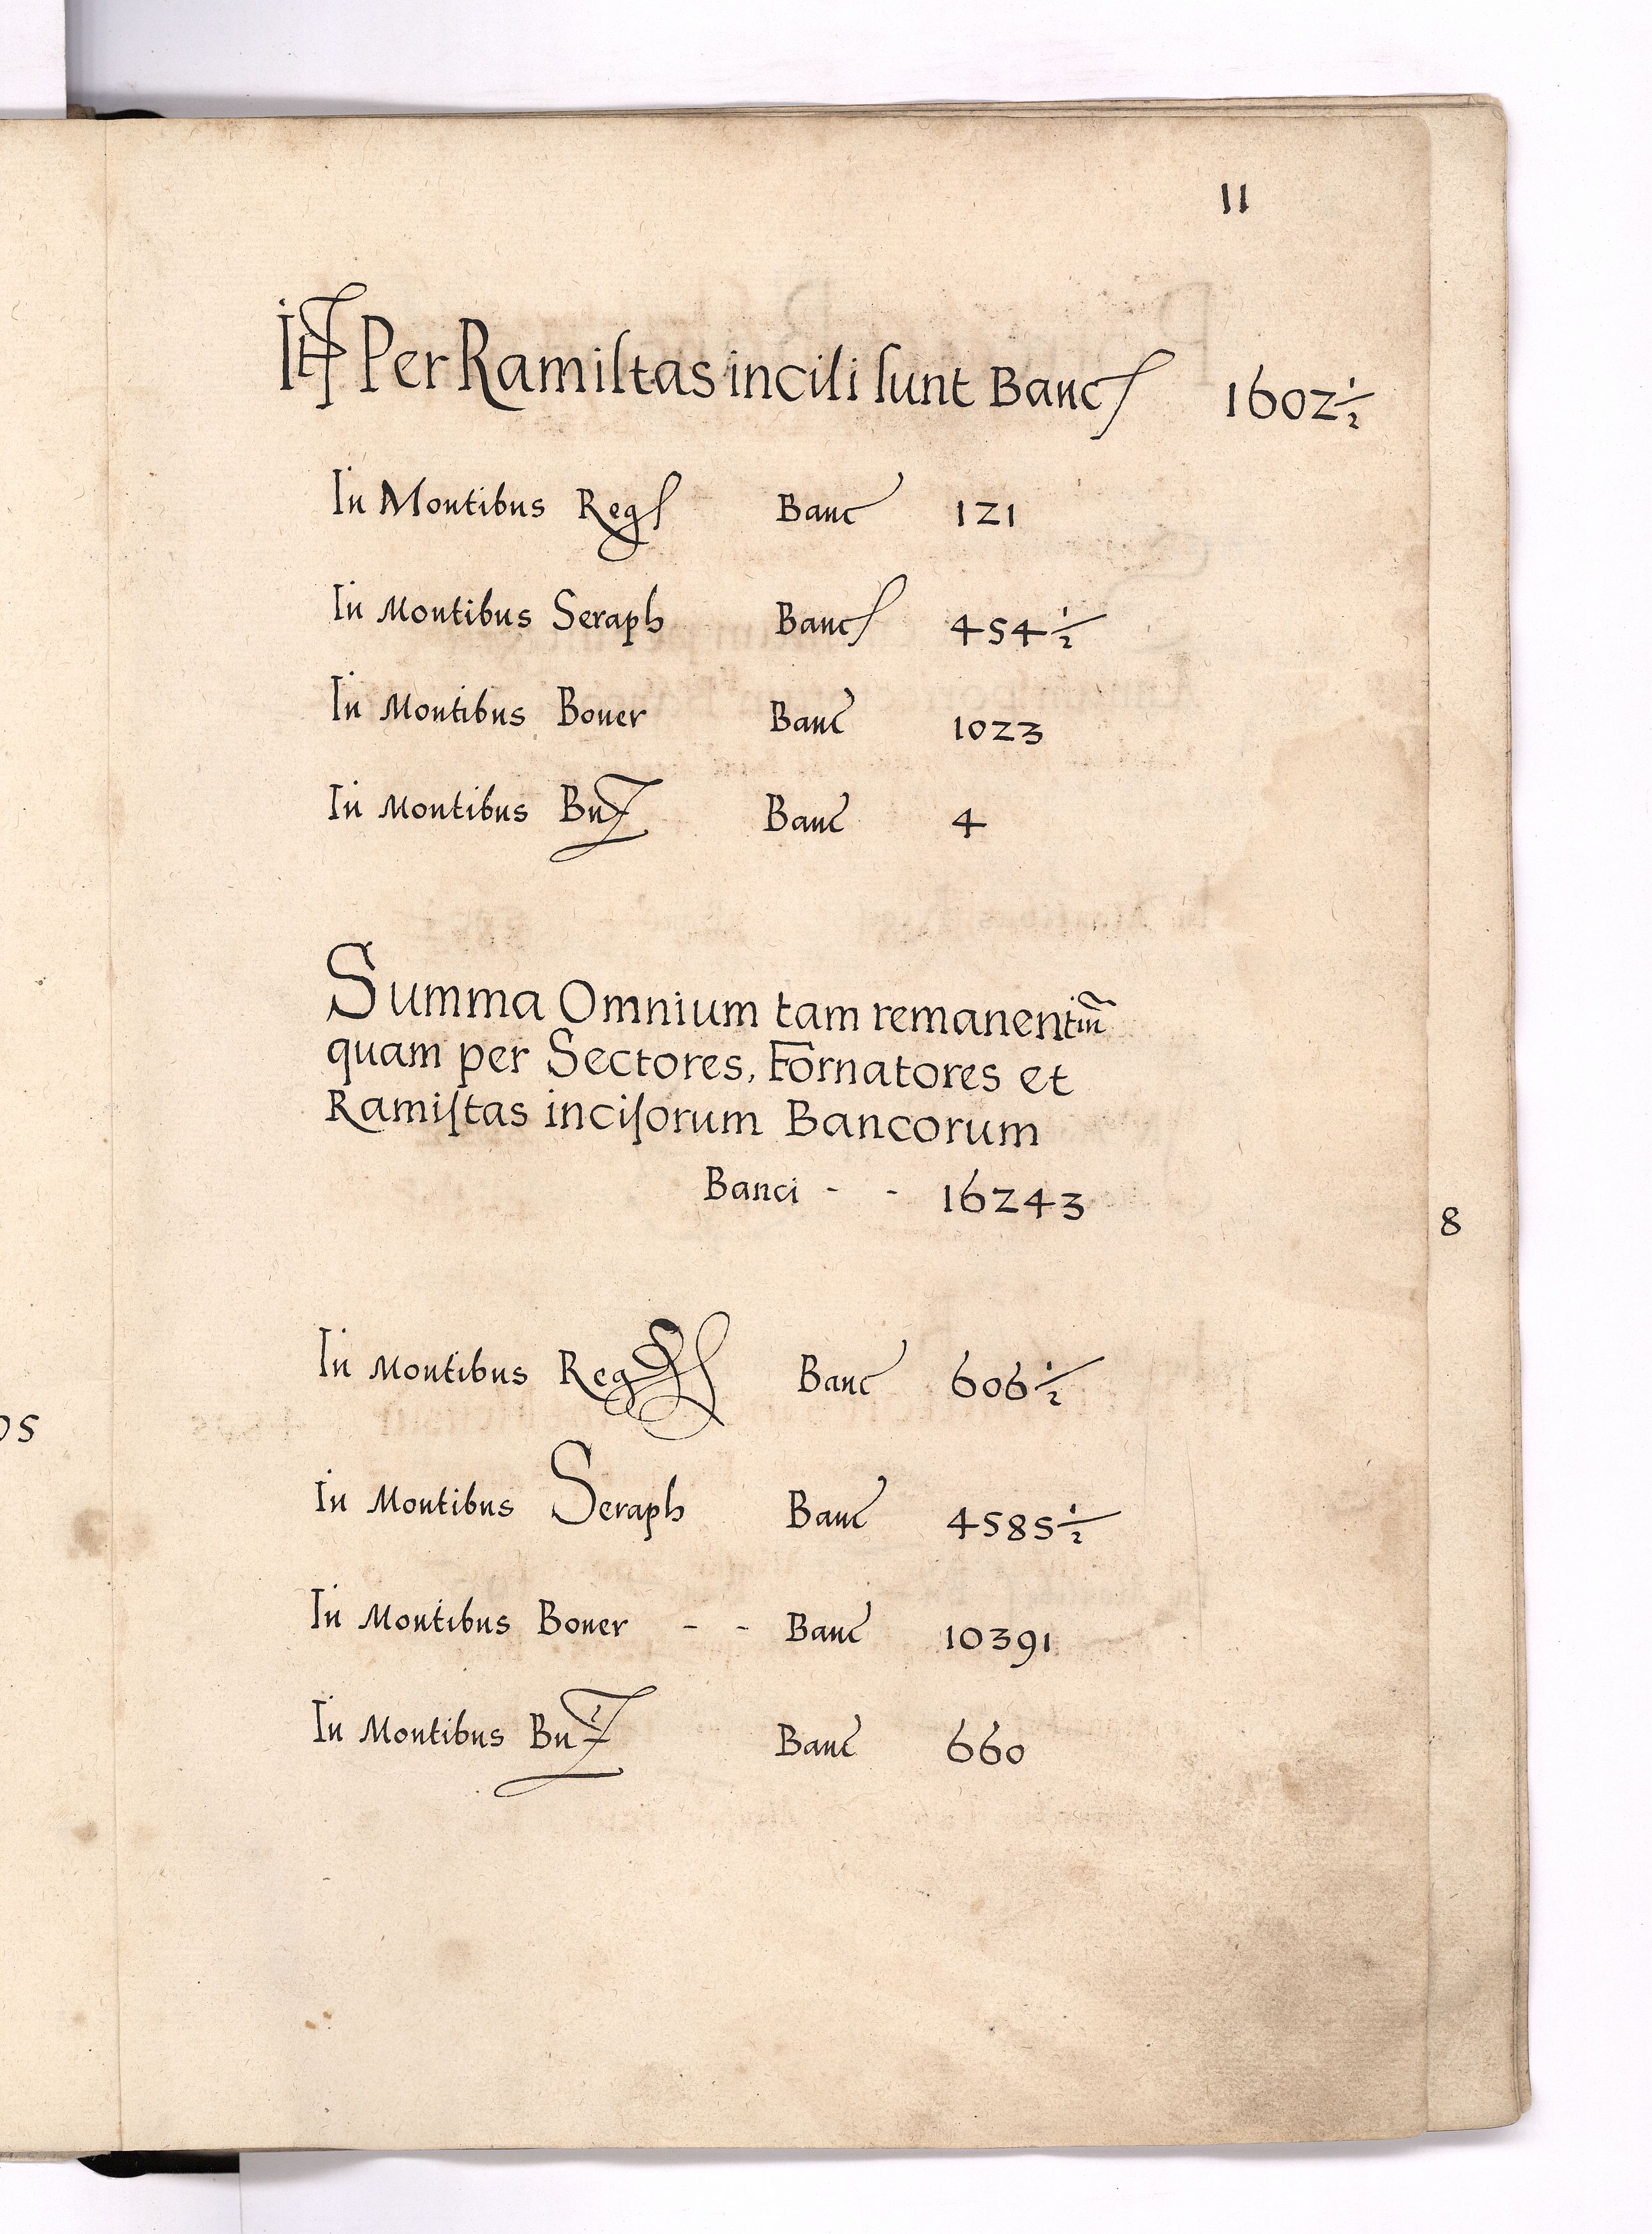 11
Itē Per Ramiſtas inciſi ſunt Banc 1602 1/2
In Montibus Reg Banc 121
In Montibus Seraph Banc 454 1/2
In Montibus Boner Banc 1023
In Montibus Buz Banc 4
Summa Omnium tam remanentiū
quam per Sectores, Fornatores et
Ramiſtas inciſorum Bancorum
Banci - - 16243
8
In Montibus Reg Banc 606 1/2
os
In Montibus Seraph Banc 4585 1/2
In Montibus Boner - - Banc 10391
In Montibus Buz Banc 660